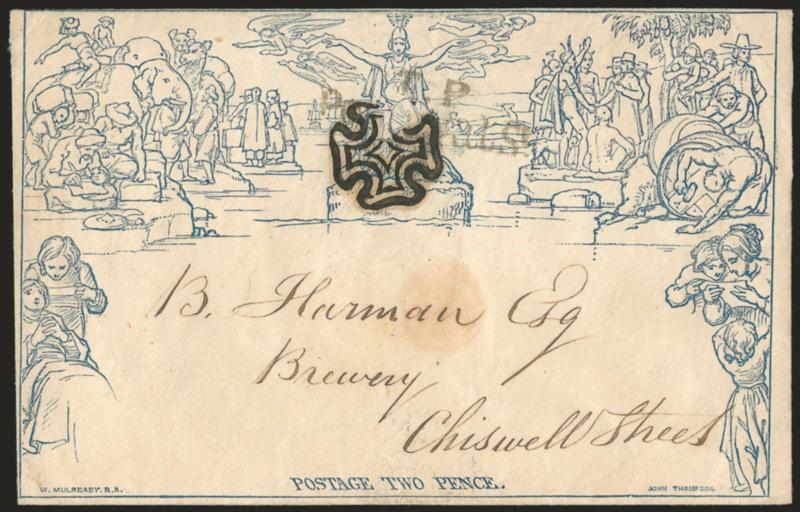 B. Harman Esq
Brewery
Chiswell Street
POSTAGE TWO PENCE.
W. MULREADY. R.A.
JOHN THOMPSON.